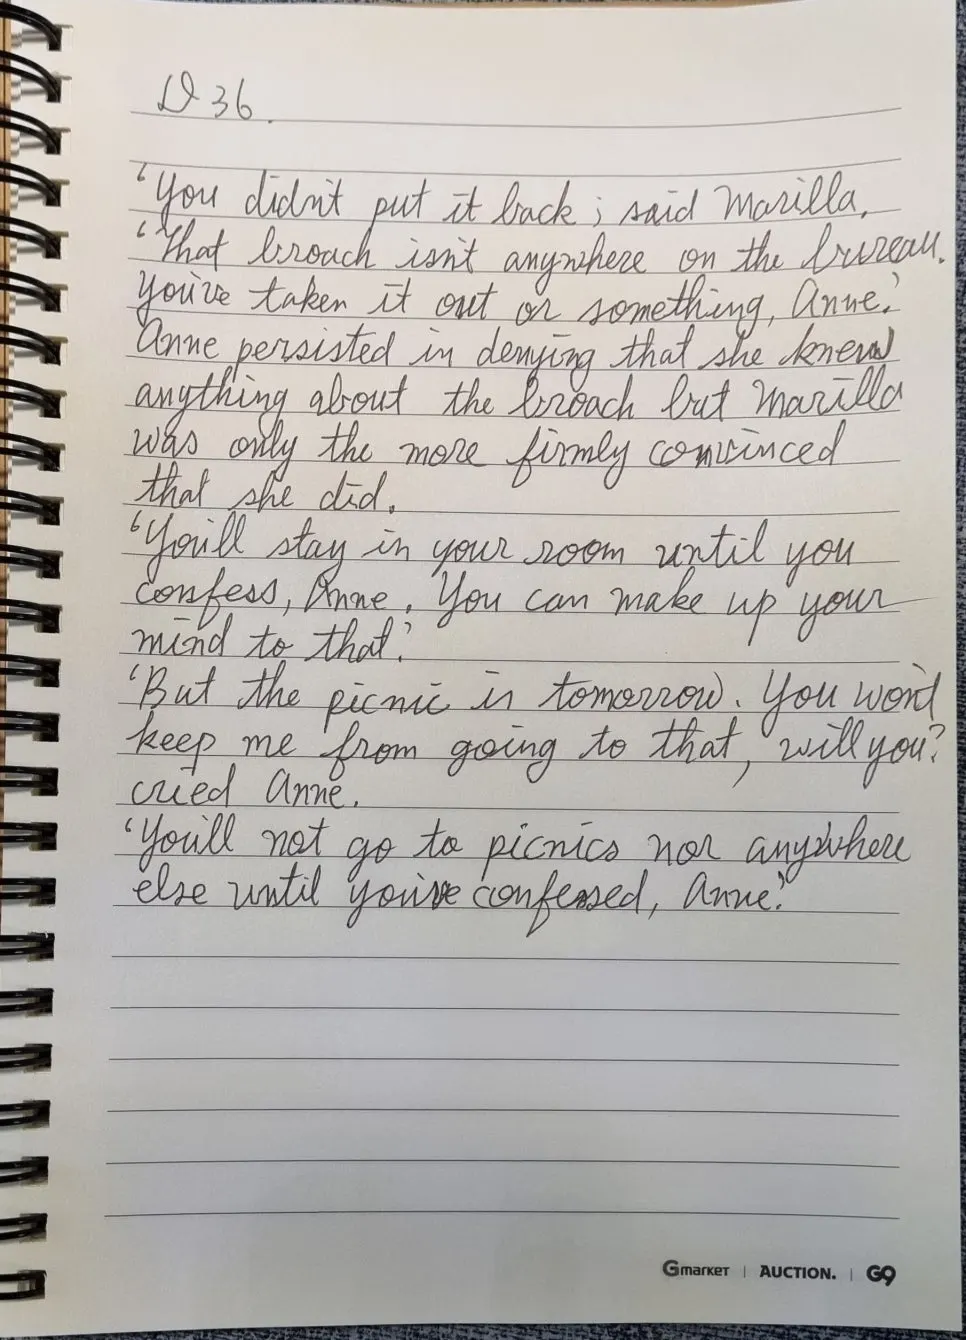 D 36.
‘You didn't put it back,’ said Marilla.
‘That broach isn't anywhere on the bureau.
You've taken it out or something, Anne.’
Anne persisted in denying that she knew
anything about the broach but Marilla
was only the more firmly convinced
that she did.
‘You'll stay in your room until you
confess, Anne. You can make up your
mind to that.’
‘But the picnic is tomorrow. You won't
keep me from going to that, will you?’
cried Anne.
‘You'll not go to picnics nor anywhere
else until you've confessed, Anne.’
Gmarket | AUCTION. | G9